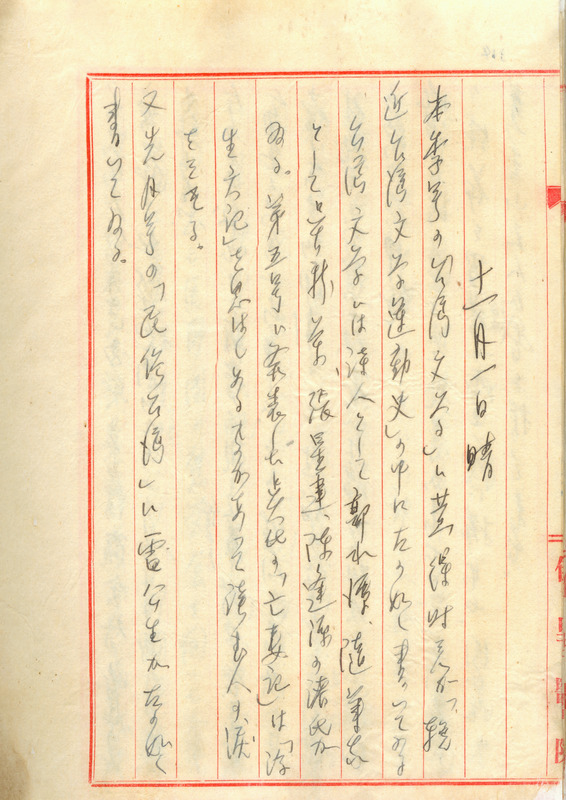 十一月一日 晴
本季号の「台湾文学」に黄得時君が「輓
近台湾文学運動史」の中に左の如く書いてゐる
台湾文学には詩人として郭水潭、随筆家
として呉新榮、張星建、陳逢源の諸氏が
ゐる。第五号に発表した呉氏の「亡妻記」は「浮
生六記」を思はしめるものがあって読む人の涙
をそそる。
又先月号の「民俗台湾」に雷公生が左の如く
書いてゐる。